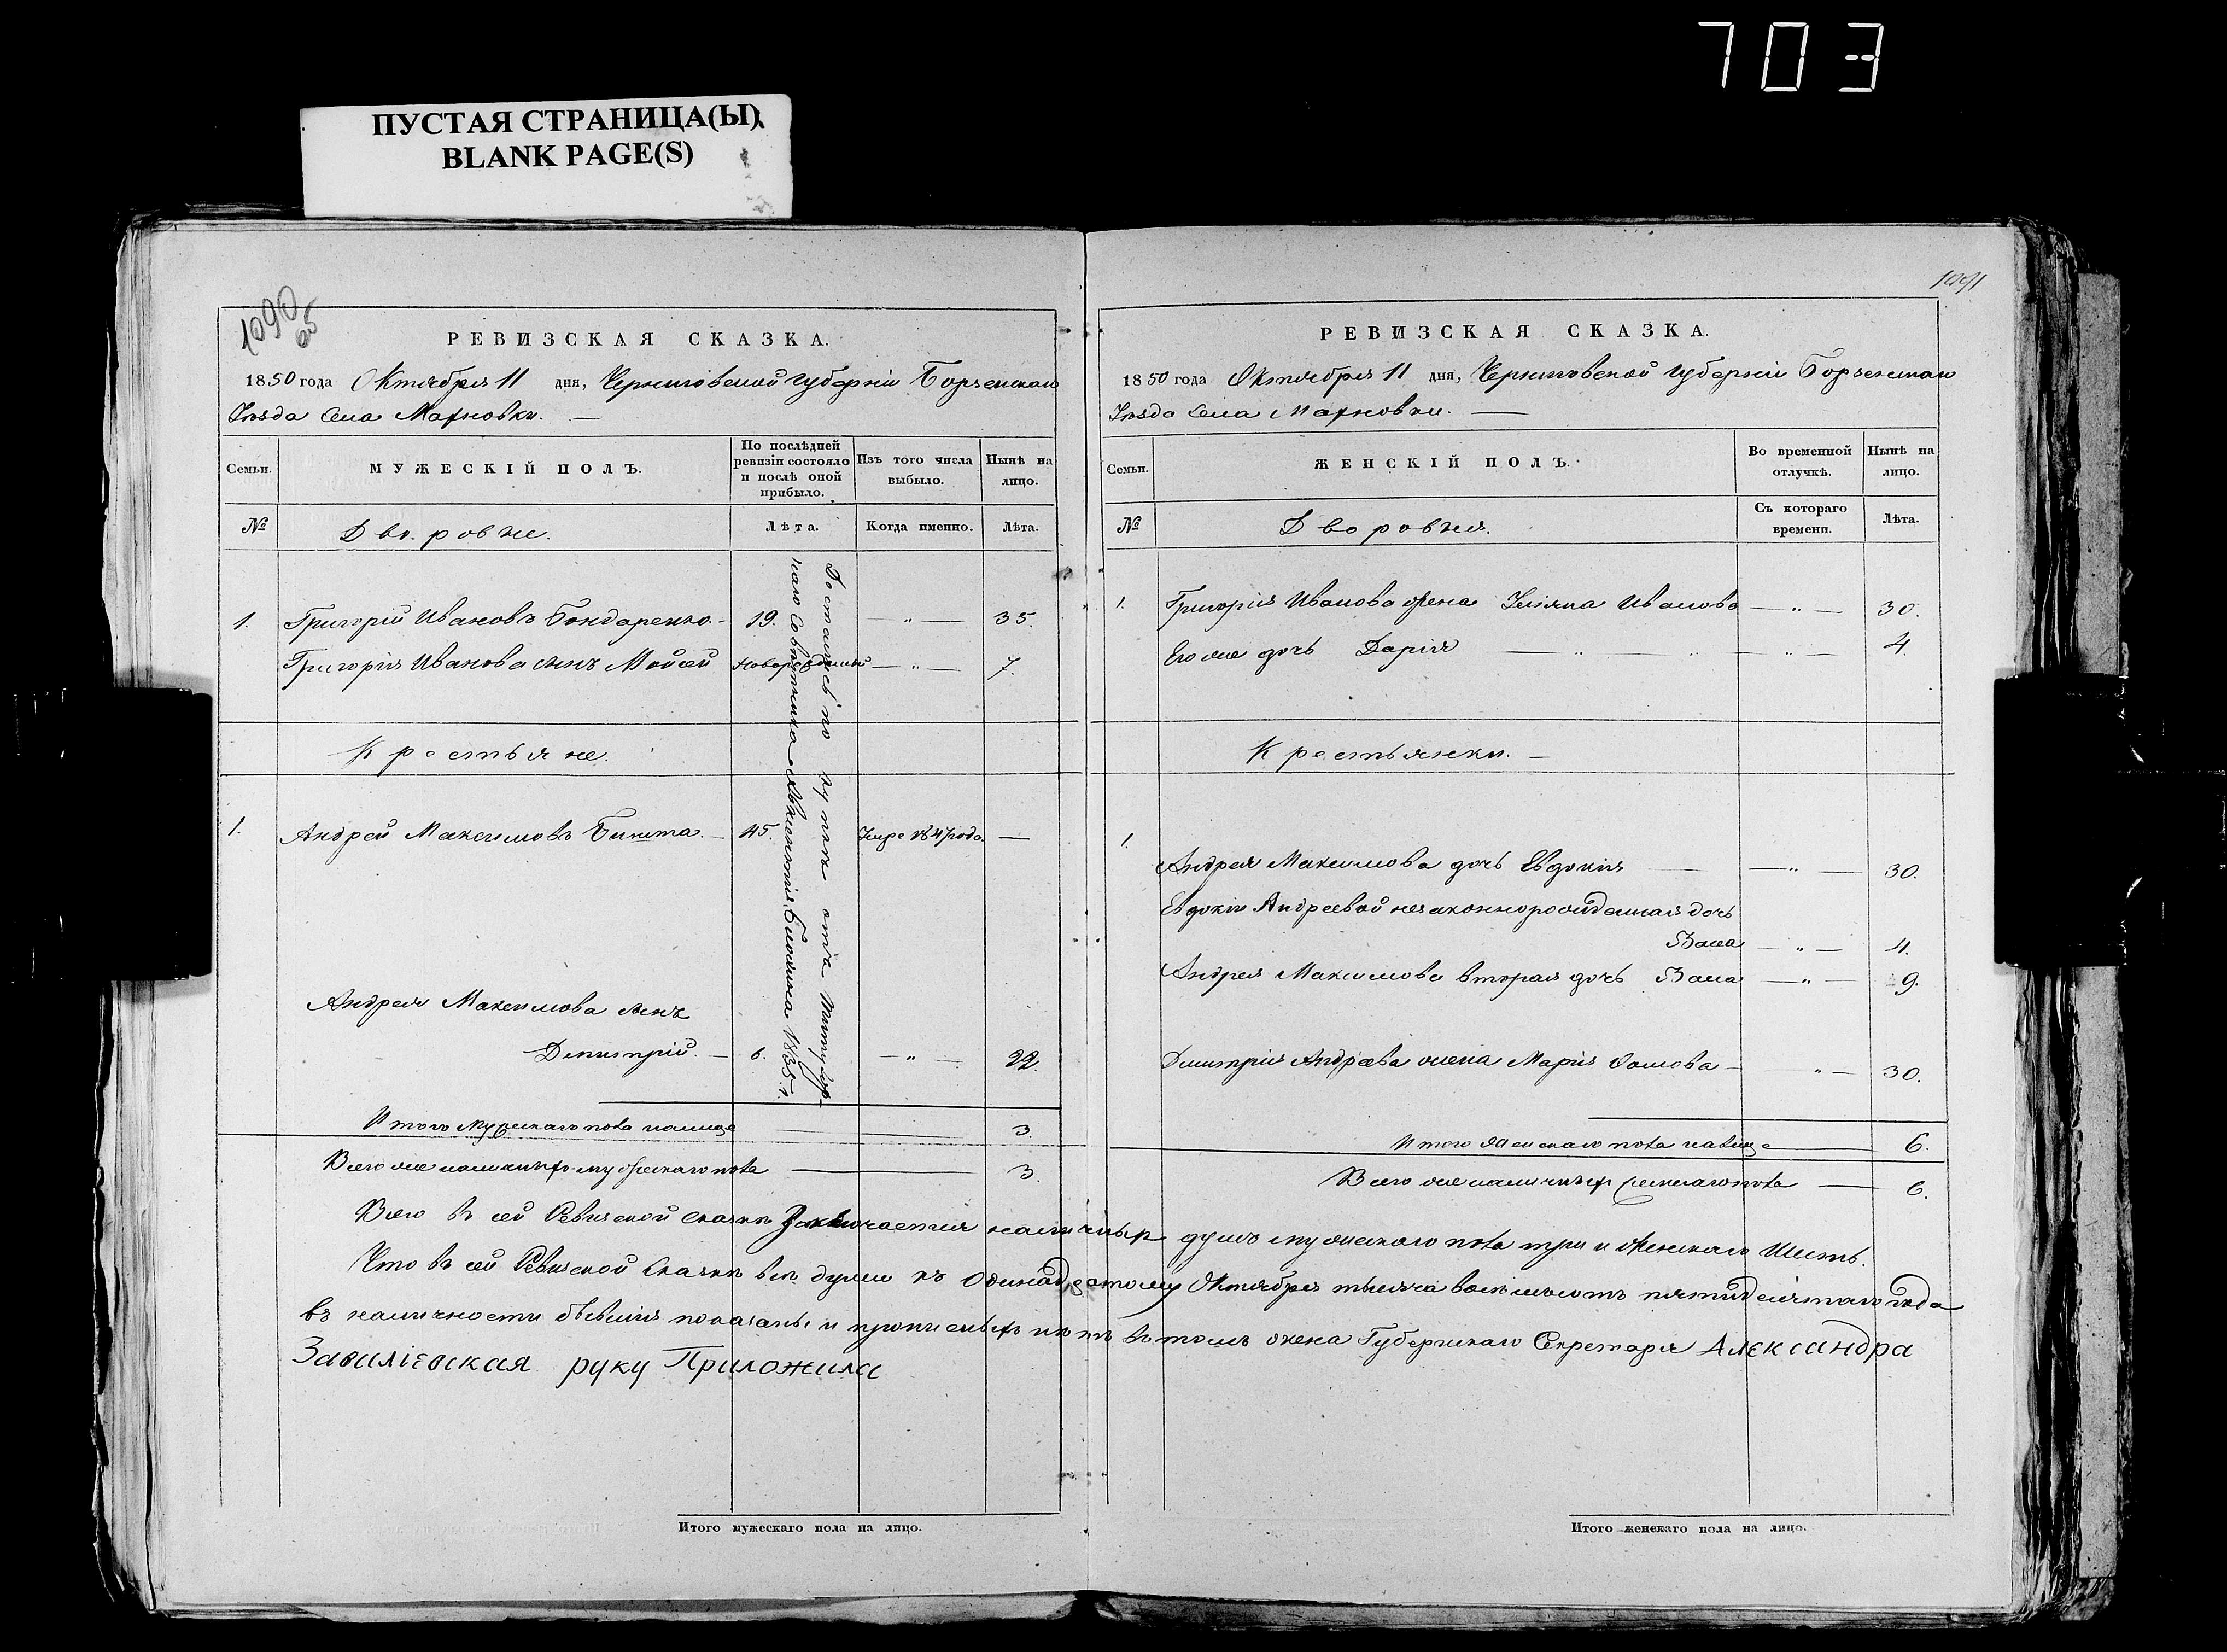 703
ПУСТАЯ СТРАНИЦА(Ы)
BLANK PAGE(S)
1090
65
РЕВИЗСКАЯ СКАЗКА.
1850 года Октября 11 дня, Черниговской губерніи Борзенскаго
Уѣзда Села Махновки.
Семьи.
МУЖЕСКІЙ ПОЛЪ.
По послѣдней ревизіи состояло и послѣ оной прибыло.
Изъ того числа выбыло.
Нынѣ на лицо.
№
Дворовые.
Лѣта.
Когда именно.
Лѣта.
1. Григорій Ивановъ Бондаренко. 19. — „ — 35.
Григорія Иванова сынъ Мойсей новорожденный — „ — 7.
Достались по купли отъ Титуляр
наго Совѣтника 1835 г.
Крестьяне.
1. Андрей Максимовъ 45. Умре 1847 года. —
Андрея Максимова сынъ
Дмитрій. — 6. — „ — 22.
Итого мужескаго пола налице 3.
Всего же наличныхъ мужескаго пола 3.
1091
РЕВИЗСКАЯ СКАЗКА.
1850 года Октября 11 дня, Черниговской губерніи Борзенскаго
Уѣзда Села Махновки.
Семьи.
ЖЕНСКІЙ ПОЛЪ.
Во временной отлучкѣ.
Нынѣ на лицо.
№
Дворовыя.
Съ котораго времени.
Лѣта.
1. Григорія Иванова жена Уліяна Иванова — „ — 30.
Его же дочь Дарія — „ — „ — „ — 4.
Крестьянки.
1.
Андрея Максимова дочь Евдокія — — „ — 30.
Евдокіи Андреевой незаконнорожденная дочь
— „ — 4.
Андрея Максимова вторая дочь — „ — 9.
Дмитрія Андреева жена Марія — „ — 30.
Итого женскаго пола налице 6.
Всего же наличныхъ женскаго пола 6.
Всего въ сей Ревизской сказкѣ Заключается наличныхъ душъ мужескаго пола три и женскаго Шесть.
Что въ сей Ревизской Сказкѣ всѣ души къ Одинадцатому Октября тысяча восемьсотъ пятидесятаго года
въ наличности бывшія показаны и прописныхъ нѣтъ въ томъ жена Губернскаго Секретаря Александра
Завилієвская руку Приложила
Итого мужескаго пола на лицо.
Итого женскаго пола на лицо.